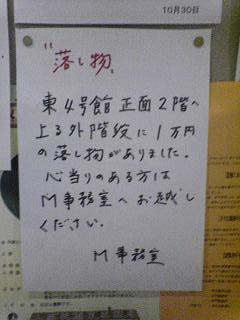 10月30日
"落し物"
東4号館正面2階へ
上る外階段に1万円
の落し物がありました。
心当りのある方は
M事務室へお越し
ください。
M事務室